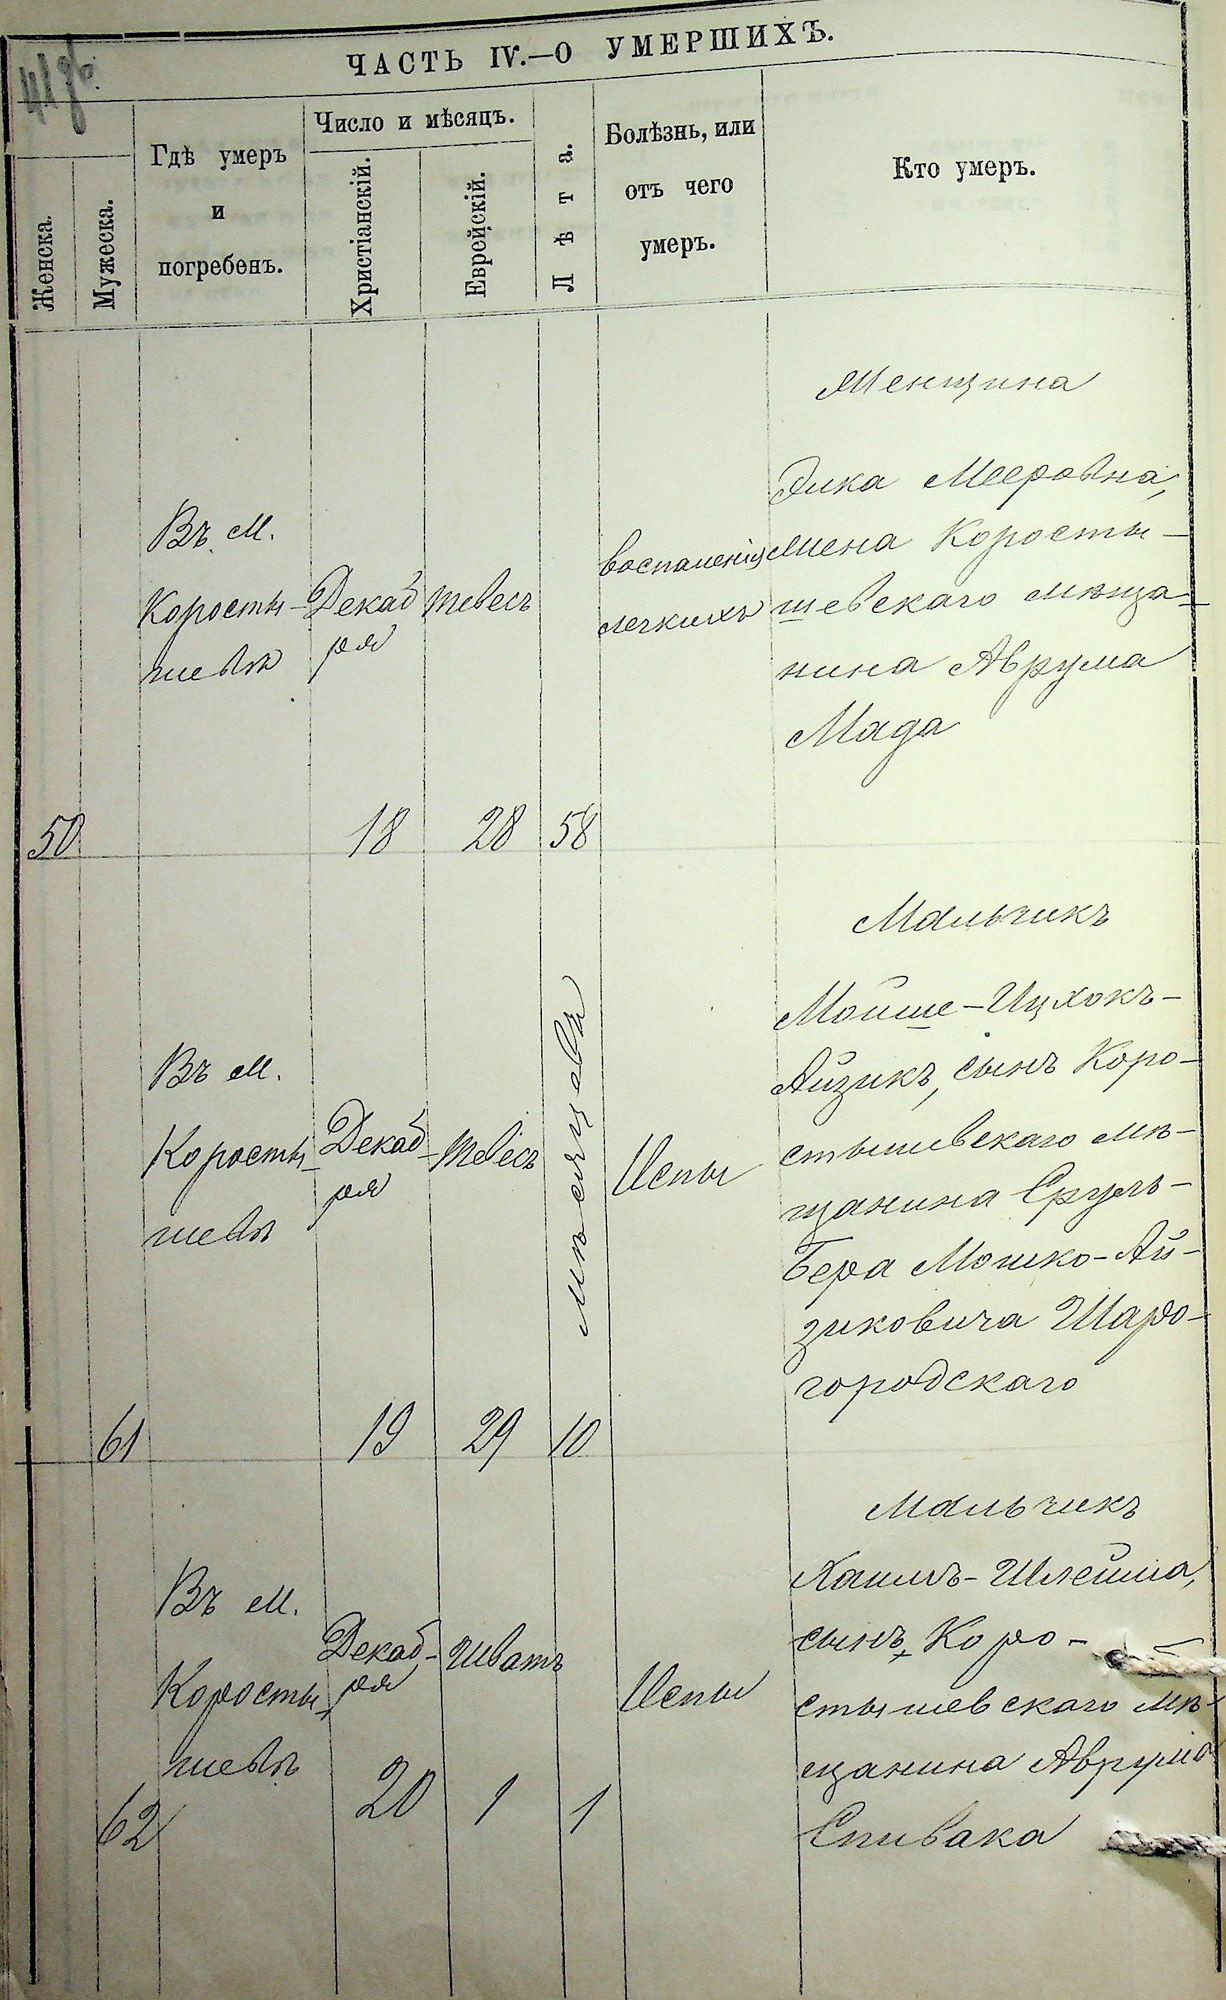 ЧАСТЬ IV.—О УМЕРШИХЪ.
Женска.
Мужеска.
Гдѣ умеръ
и
погребенъ.
Число и мѣсяцъ.
Христіанскій.
Еврейскій.
Лѣта.
Болѣзнь, или
отъ чего
умеръ.
Кто умеръ.
50
Въ м.
Коросты-
шевѣ
Декаб
ря
18
Тевесъ
28
58
воспаленія
легкихъ
Женщина
Элка Мееровна,
жена Коросты-
шевскаго мѣща-
нина Аврума
Мада
61
Въ м.
Коросты-
шевѣ
Декаб-
ря
19
Тевесъ
29
мѣсяцовъ
10
Оспы
Мальчикъ
Мойше-Ицхокъ-
Айзикъ, сынъ Коро-
стышевскаго мѣ-
щанина Сруль-
Бера Мошко-Ай-
зиковича Шаро-
городскаго
62
Въ м.
Коросты-
шевѣ
Декаб-
ря
20
Шватъ
1
1
Оспы
Мальчикъ
Хаимъ-Шлейма,
сынъ Коро-
стышевскаго мѣ-
щанина Аврума
Спивака